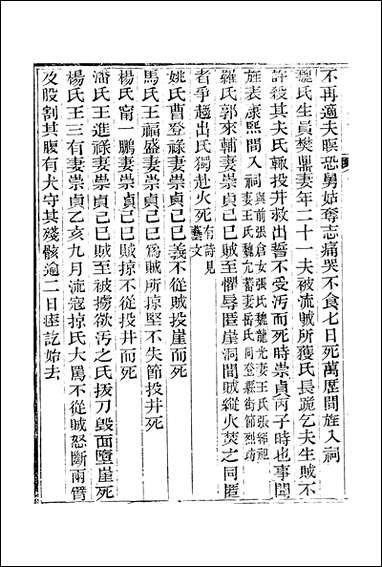 不再適夫暝恐舅姑奪志痛哭不食七日死萬歷間旌入祠
龐氏生員樊鼎妻年二十一夫被流賊所獲氏長跪乞夫生賊不
許殺其夫氏輙投井救出誓不受汚而死時崇貞丙子時也事聞
旌表康熙間入祠與前張倉女張氏魏龍光妻王氏張
妻王氏魏亢蓄妻岳氏同登縣街節烈坊
羅氏郭來輔妻崇貞己巳賊至懼辱匿崖洞間賊縱火焚之同匿
者爭趨出氏獨赴火死有詩見
藝文
姚氏曹登祿妻崇貞己巳義不從賊投崖而死
馬氏王福盛妻崇貞己巳為賊所掠堅不失節投井死
楊氏甯一鵬妻崇貞己巳賊掠不從投井而死
潘氏王進祿妻崇貞己巳賊至被擄欲汚之氏拔刀毀面墮崖死
楊氏王三有妻崇貞乙亥九月流寇掠氏大罵不從賊怒斷兩臂
及股割其腹有犬守其殘骸逾二日瘞訖始去